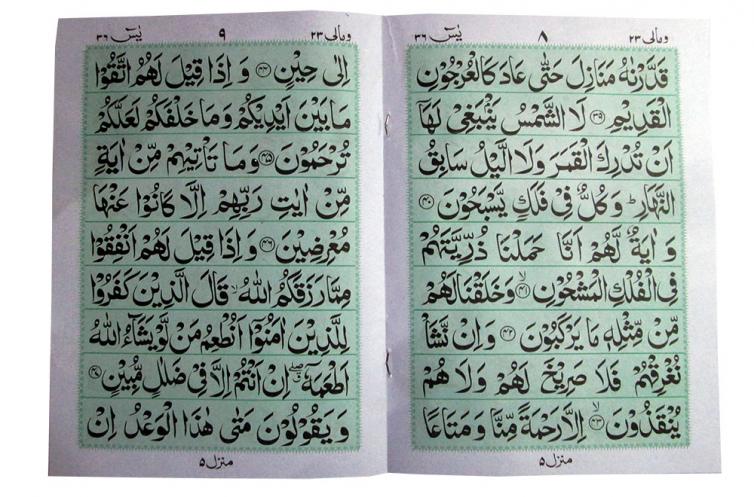 ومالی ۲۳ ۸ یٰسٓ ۳۶
قَدَّرْنٰهُ مَنَازِلَ حَتّٰى عَادَ كَالْعُرْجُوْنِ
الْقَدِيْمِ ۝۳۹ لَا الشَّمْسُ يَنْۢبَغِىْ لَهَاۤ
اَنْ تُدْرِكَ الْقَمَرَ وَلَا الَّيْلُ سَابِقُ
النَّهَارِ ؕ وَكُلٌّ فِىْ فَلَكٍ يَّسْبَحُوْنَ ۝۴۰
وَاٰيَةٌ لَّهُمْ اَنَّا حَمَلْنَا ذُرِّيَّتَهُمْ
فِى الْفُلْكِ الْمَشْحُوْنِ ۝۴۱ۙ وَخَلَقْنَا لَهُمْ
مِّنْ مِّثْلِهٖ مَا يَرْكَبُوْنَ ۝۴۲ وَاِنْ نَّشَاْ
نُغْرِقْهُمْ فَلَا صَرِيْخَ لَهُمْ وَلَا هُمْ
يُنْقَذُوْنَ ۝۴۳ۙ اِلَّا رَحْمَةً مِّنَّا وَمَتَاعًا
منزل ۵
ومالی ۲۳ ۹ یٰسٓ ۳۶
اِلٰى حِيْنٍ ۝۴۴ وَاِذَا قِيْلَ لَهُمُ اتَّقُوْا
مَا بَيْنَ اَيْدِيْكُمْ وَمَا خَلْفَكُمْ لَعَلَّكُمْ
تُرْحَمُوْنَ ۝۴۵ وَمَا تَاْتِيْهِمْ مِّنْ اٰيَةٍ
مِّنْ اٰيٰتِ رَبِّهِمْ اِلَّا كَانُوْا عَنْهَا
مُعْرِضِيْنَ ۝۴۶ وَاِذَا قِيْلَ لَهُمْ اَنْفِقُوْا
مِمَّا رَزَقَكُمُ اللّٰهُ ۙ قَالَ الَّذِيْنَ كَفَرُوْا
لِلَّذِيْنَ اٰمَنُوْۤا اَنُطْعِمُ مَنْ لَّوْ يَشَآءُ اللّٰهُ
اَطْعَمَهٗۤ ۖ اِنْ اَنْتُمْ اِلَّا فِىْ ضَلٰلٍ مُّبِيْنٍ ۝۴۷
وَيَقُوْلُوْنَ مَتٰى هٰذَا الْوَعْدُ اِنْ
منزل ۵